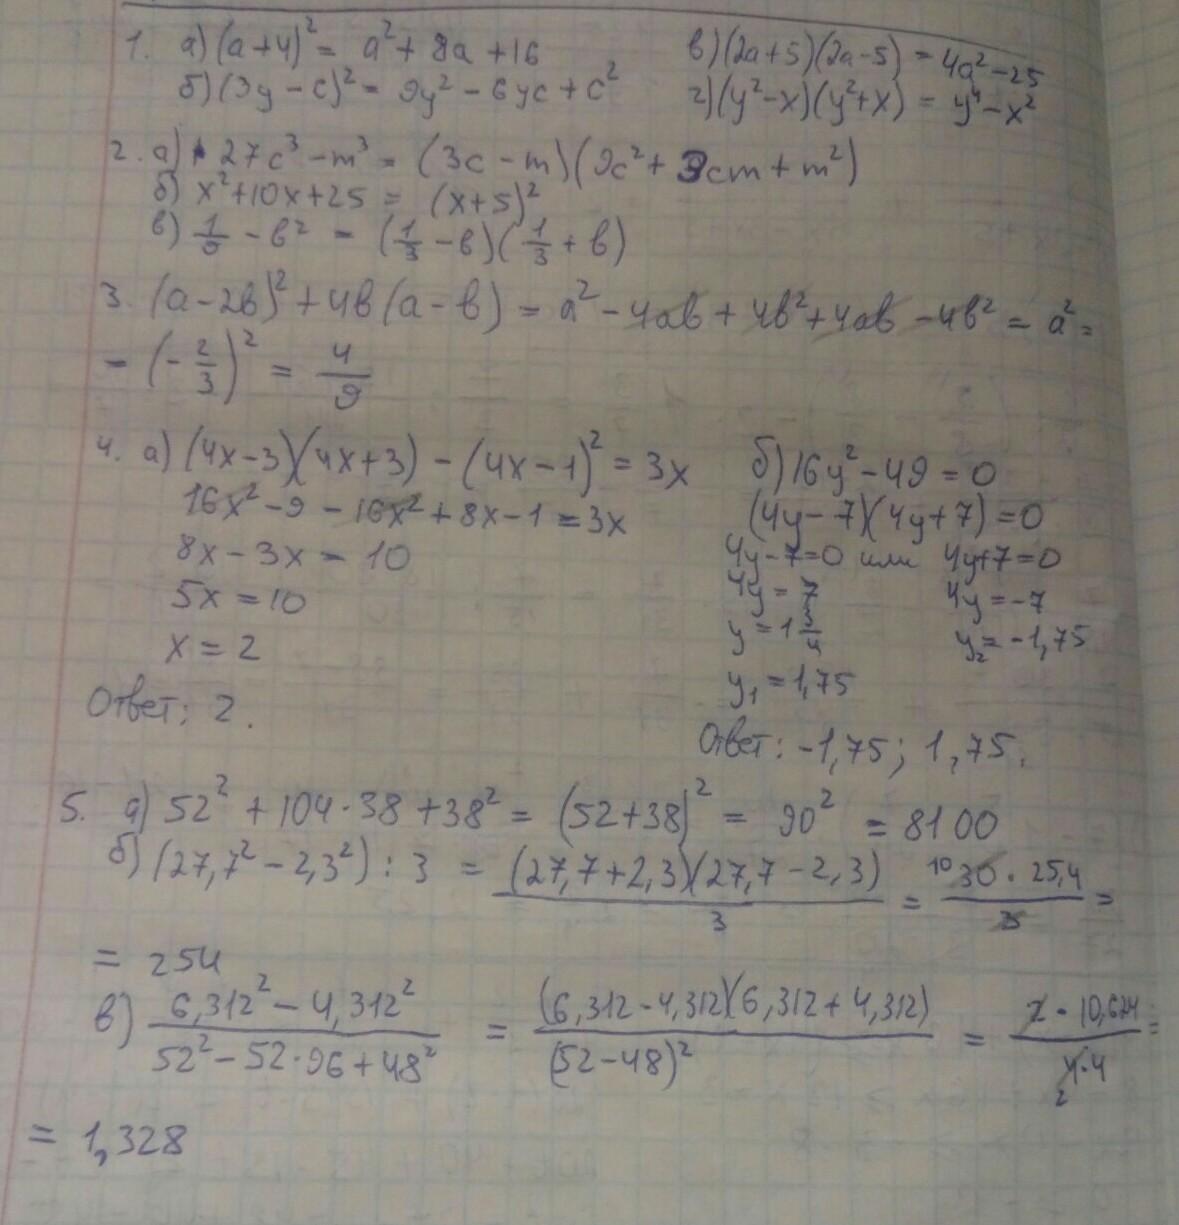 1. а) (a+4)² = a² + 8a + 16
в) (2a+5)(2a-5) = 4a² - 25
б) (3y - c)² = 9y² - 6yc + c²
г) (y² - x)(y² + x) = y⁴ - x²
2. а) 27c³ - m³ = (3c - m)(9c² + 3cm + m²)
б) x² + 10x + 25 = (x+5)²
в) 1/9 - в² = (1/3 - в)(1/3 + в)
3. (a - 2в)² + 4в(a - в) = a² - 4aв + 4в² + 4aв - 4в² = a² =
= (-2/3)² = 4/9
4. а) (4x-3)(4x+3) - (4x-1)² = 3x
16x² - 9 - 16x² + 8x - 1 = 3x
8x - 3x = 10
5x = 10
x = 2
Ответ: 2.
б) 16y² - 49 = 0
(4y - 7)(4y + 7) = 0
4y - 7 = 0 или 4y + 7 = 0
4y = 7 4y = -7
y = 1 3/4 y₂ = -1,75
y₁ = 1,75
Ответ: -1,75; 1,75.
5. а) 52² + 104·38 + 38² = (52+38)² = 90² = 8100
б) (27,7² - 2,3²) : 3 = (27,7+2,3)(27,7-2,3)/3 = 10 30·25,4/3 =
= 254
в) 6,312² - 4,312²/52² - 52·96 + 48² = (6,312 - 4,312)(6,312 + 4,312)/(52-48)² = 2·10,624/4·4 2 =
= 1,328